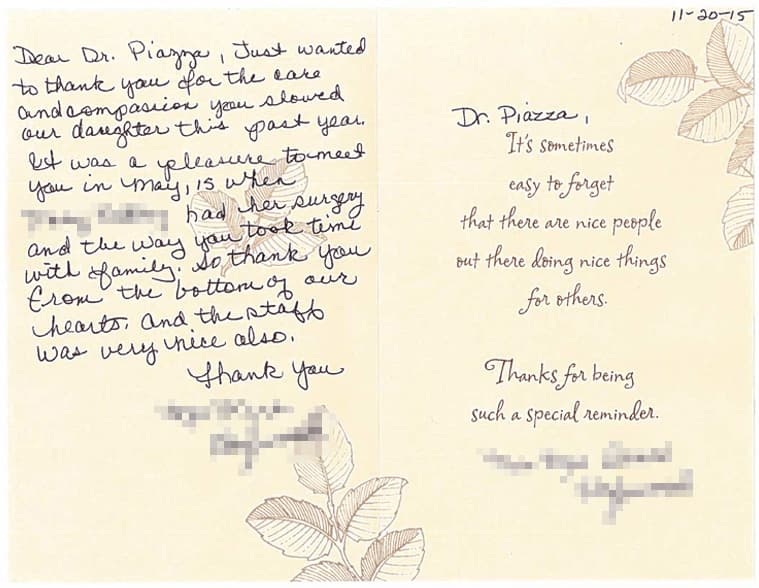 Dear Dr. Piazza, Just wanted
to thank you for the care
and compassion you slowed
our daughter this past year.
It was a pleasure to meet
you in May, 15 when
had her surgery
and the way you took time
with family. So thank you
from the bottom of our
hearts. And the staff
was very nice also.
Thank You
11-20-15
Dr. Piazza,
It's sometimes
easy to forget
that there are nice people
out there doing nice things
for others.
Thanks for being
such a special reminder.